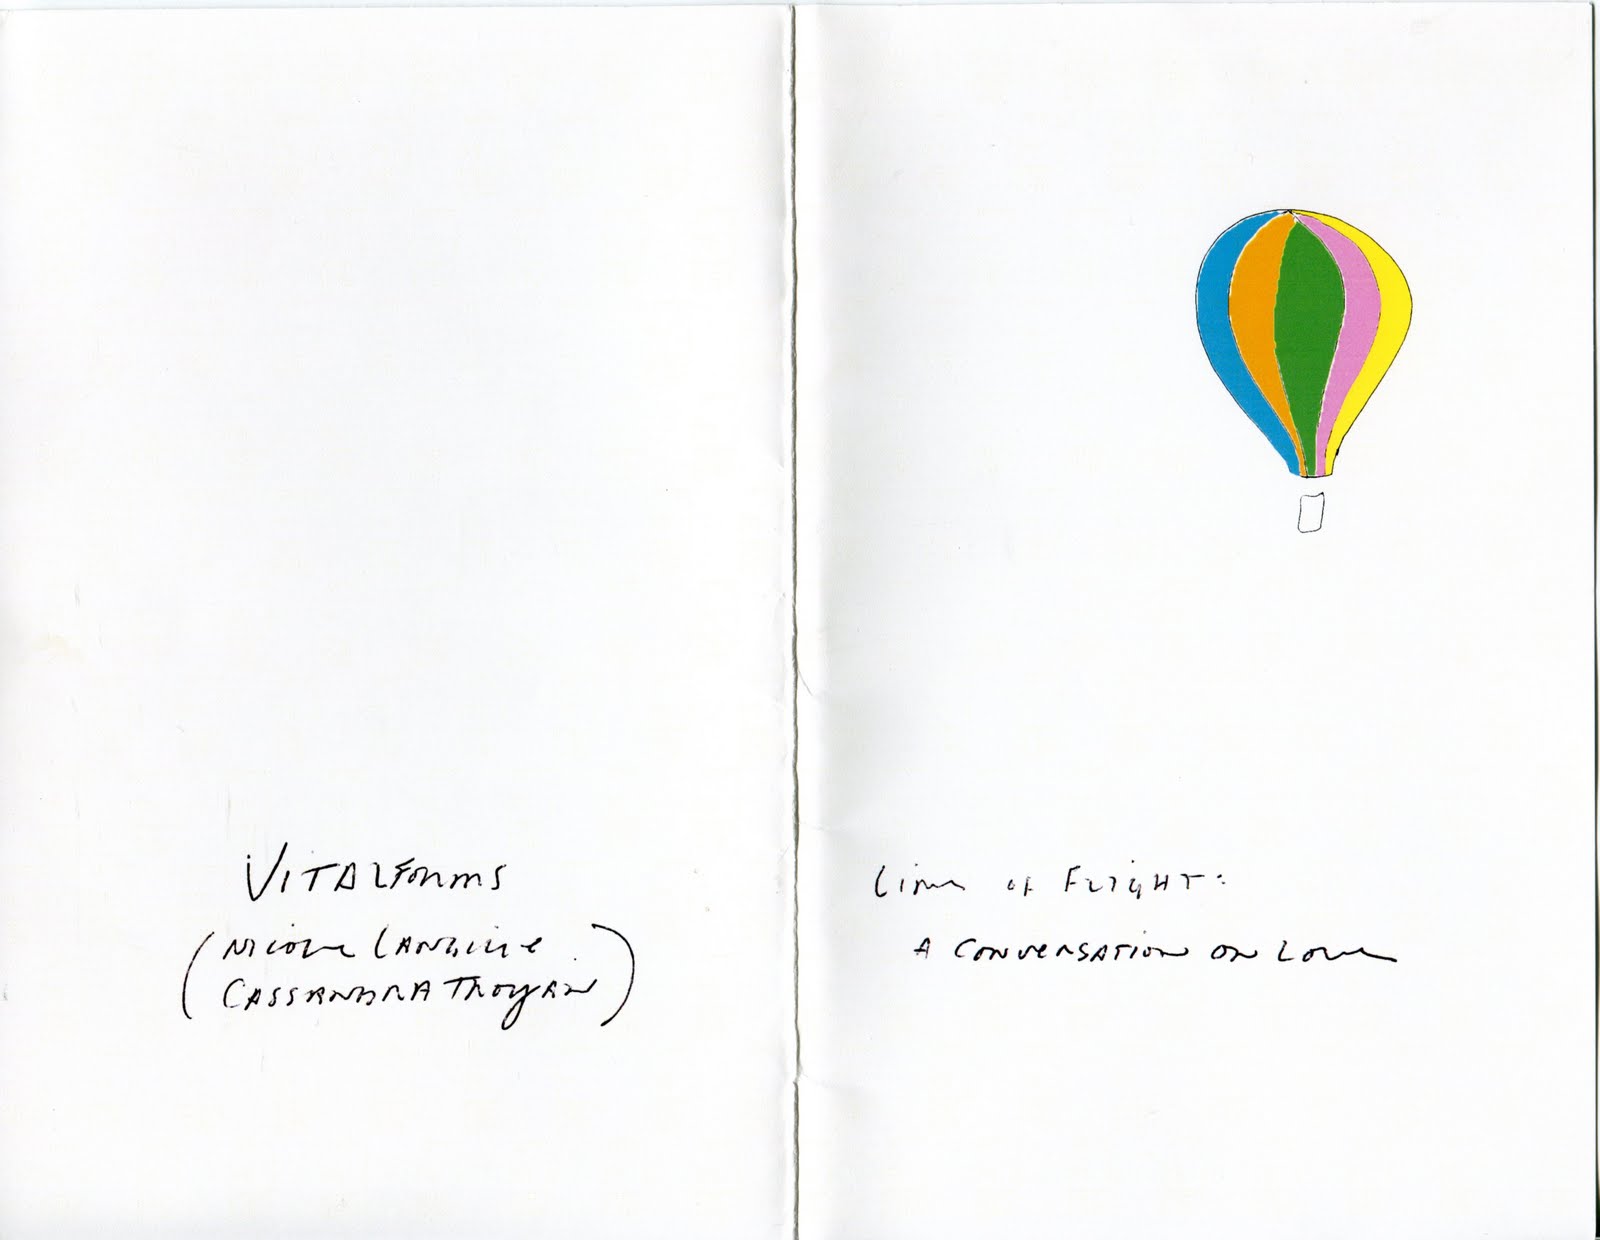 VITALFORMS
(NICOLE LANGILLE
CASSANDRA TROYAN)
Lines OF FLIGHT:
A CONVERSATION ON LOVE